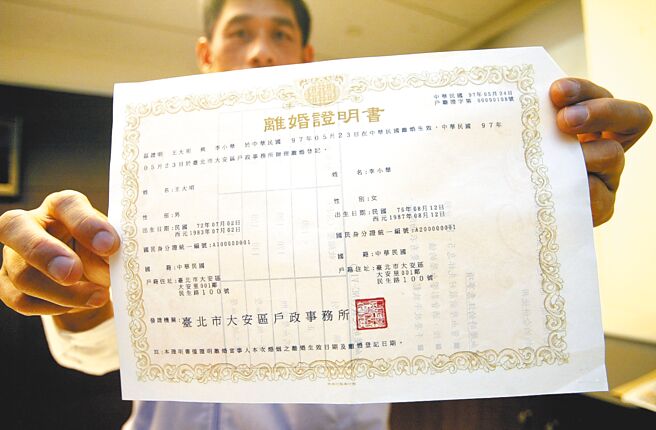 中華民國 97年05月24日
戶離證字第 00000108號
離婚證明書
茲證明 王大明 與 李小華 於中華民國 97年05月23日在中華民國離婚生效，中華民國 97年
05月23日於臺北市大安區戶政事務所辦理離婚登記。
姓名：王大明
姓名：李小華
性別：男
性別：女
出生日期：民國 72年07月02日
西元1983年07月02日
出生日期：民國 76年08月12日
西元1987年08月12日
國民身分證統一編號：A100000001
國民身分證統一編號：A200000001
國籍：中華民國
國籍：中華民國
戶籍住址：臺北市大安區
大安里001鄰
民生路100號
戶籍住址：臺北市大安區
大安里001鄰
民生路100號
發證機關：臺北市大安區戶政事務所
註：本證明書僅證明離婚當事人本次婚姻之離婚生效日期及離婚登記日期。